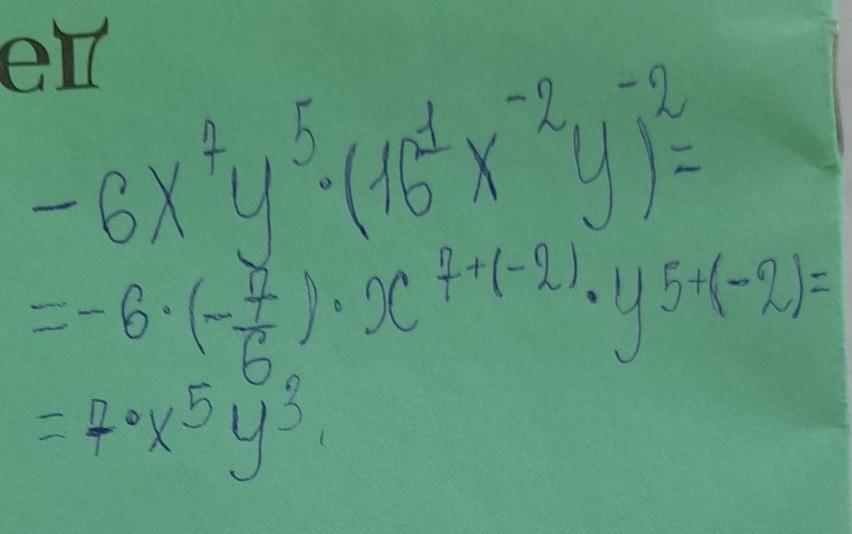 еп
-6x⁷y⁵·(16¹x⁻²y)⁻²=
=-6·(-7/6)·x⁷⁺⁽⁻²⁾·y⁵⁺⁽⁻²⁾=
=7·x⁵y³.